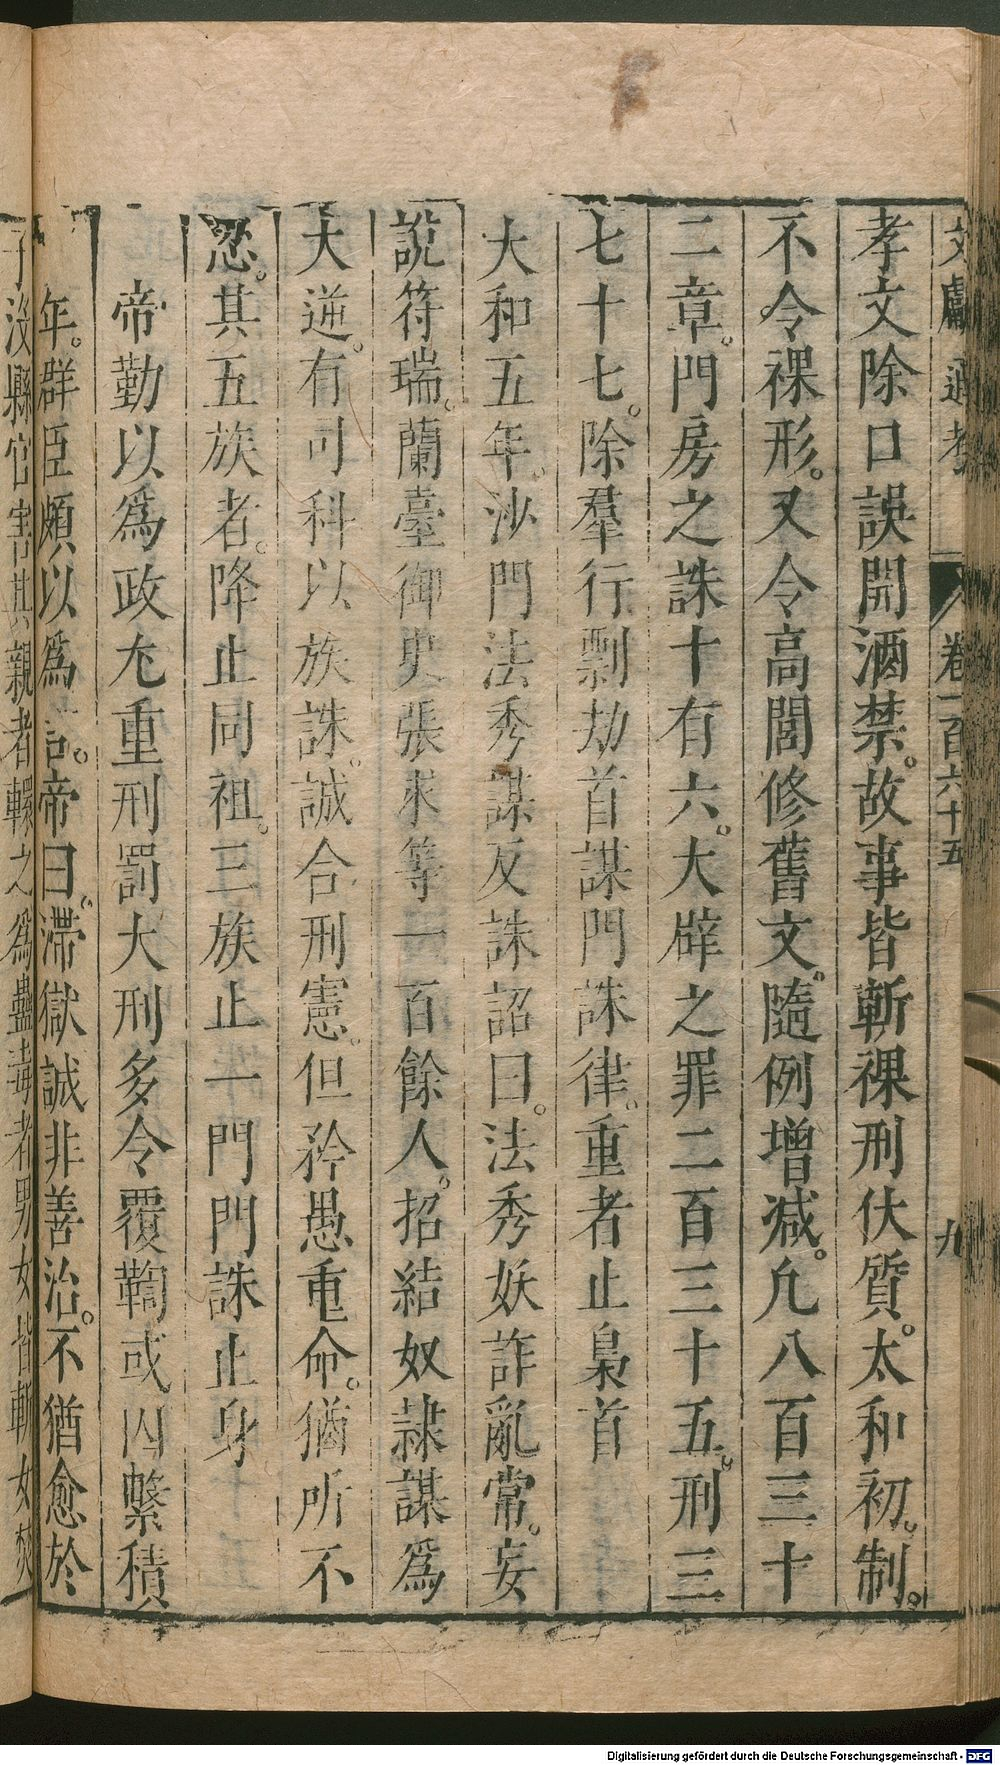 文獻通考 卷一百六十五 九
孝文除口誤開酒禁。故事皆斬裸刑伏質。太和初。制。
不令裸形。又令高閭修舊文。隨例增減。凢八百三十
二章。門房之誅十有六。大辟之罪二百三十五。刑三
七十七。除羣行剽劫首謀門誅律。重者止梟首
大和五年。沙門法秀謀反誅詔曰。法秀妖詐亂常。妄
說符瑞。蘭臺御史張求等一百餘人。招結奴隷謀爲
大逆。有司科以族誅。誠合刑憲。但矜愚重命。猶所不
忍。其五族者。降止同祖。三族止一門門誅止身
帝勤以爲政尤重刑罰大刑多令覆鞫或囚繫積
年。群臣頗以爲言。帝曰。滯獄誠非善治。不猶愈於
子沒縣官害其親者轘之爲蠱毒者男女皆斬女焚
Digitalisierung gefördert durch die Deutsche Forschungsgemeinschaft - DFG